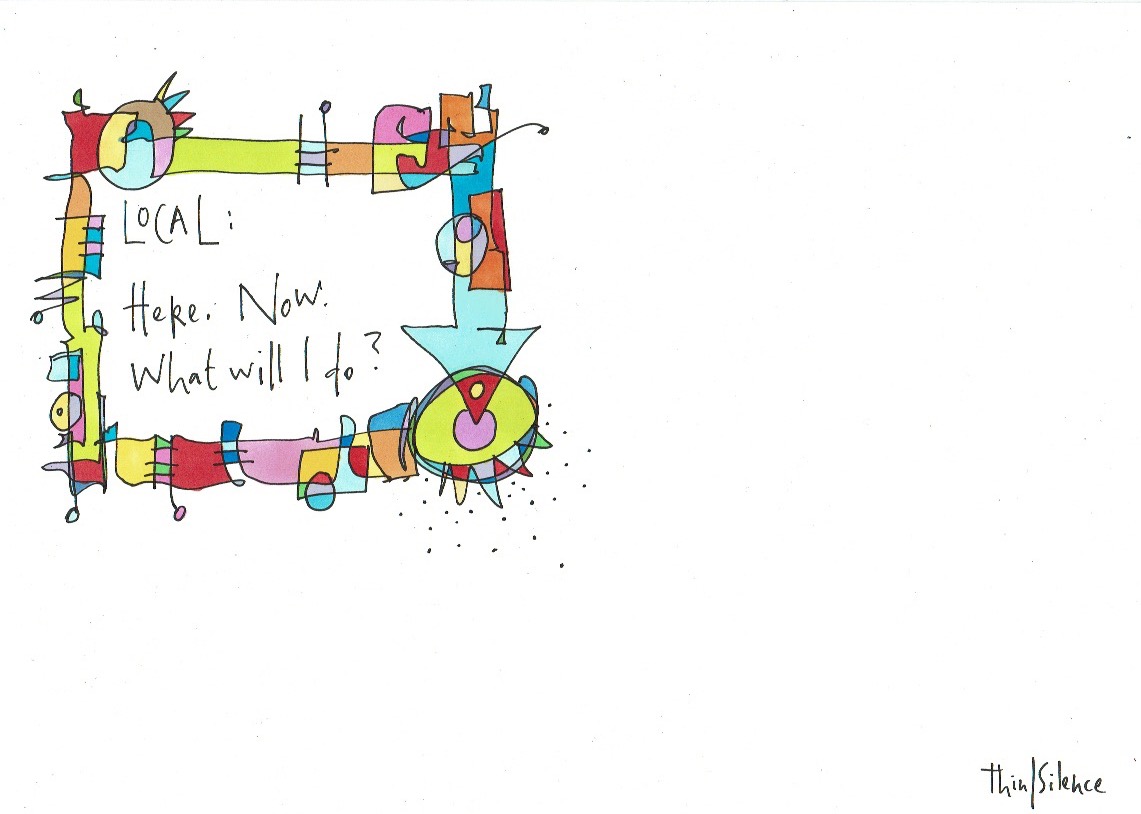 LOCAL:
Here. Now.
What will I do?
thin/Silence